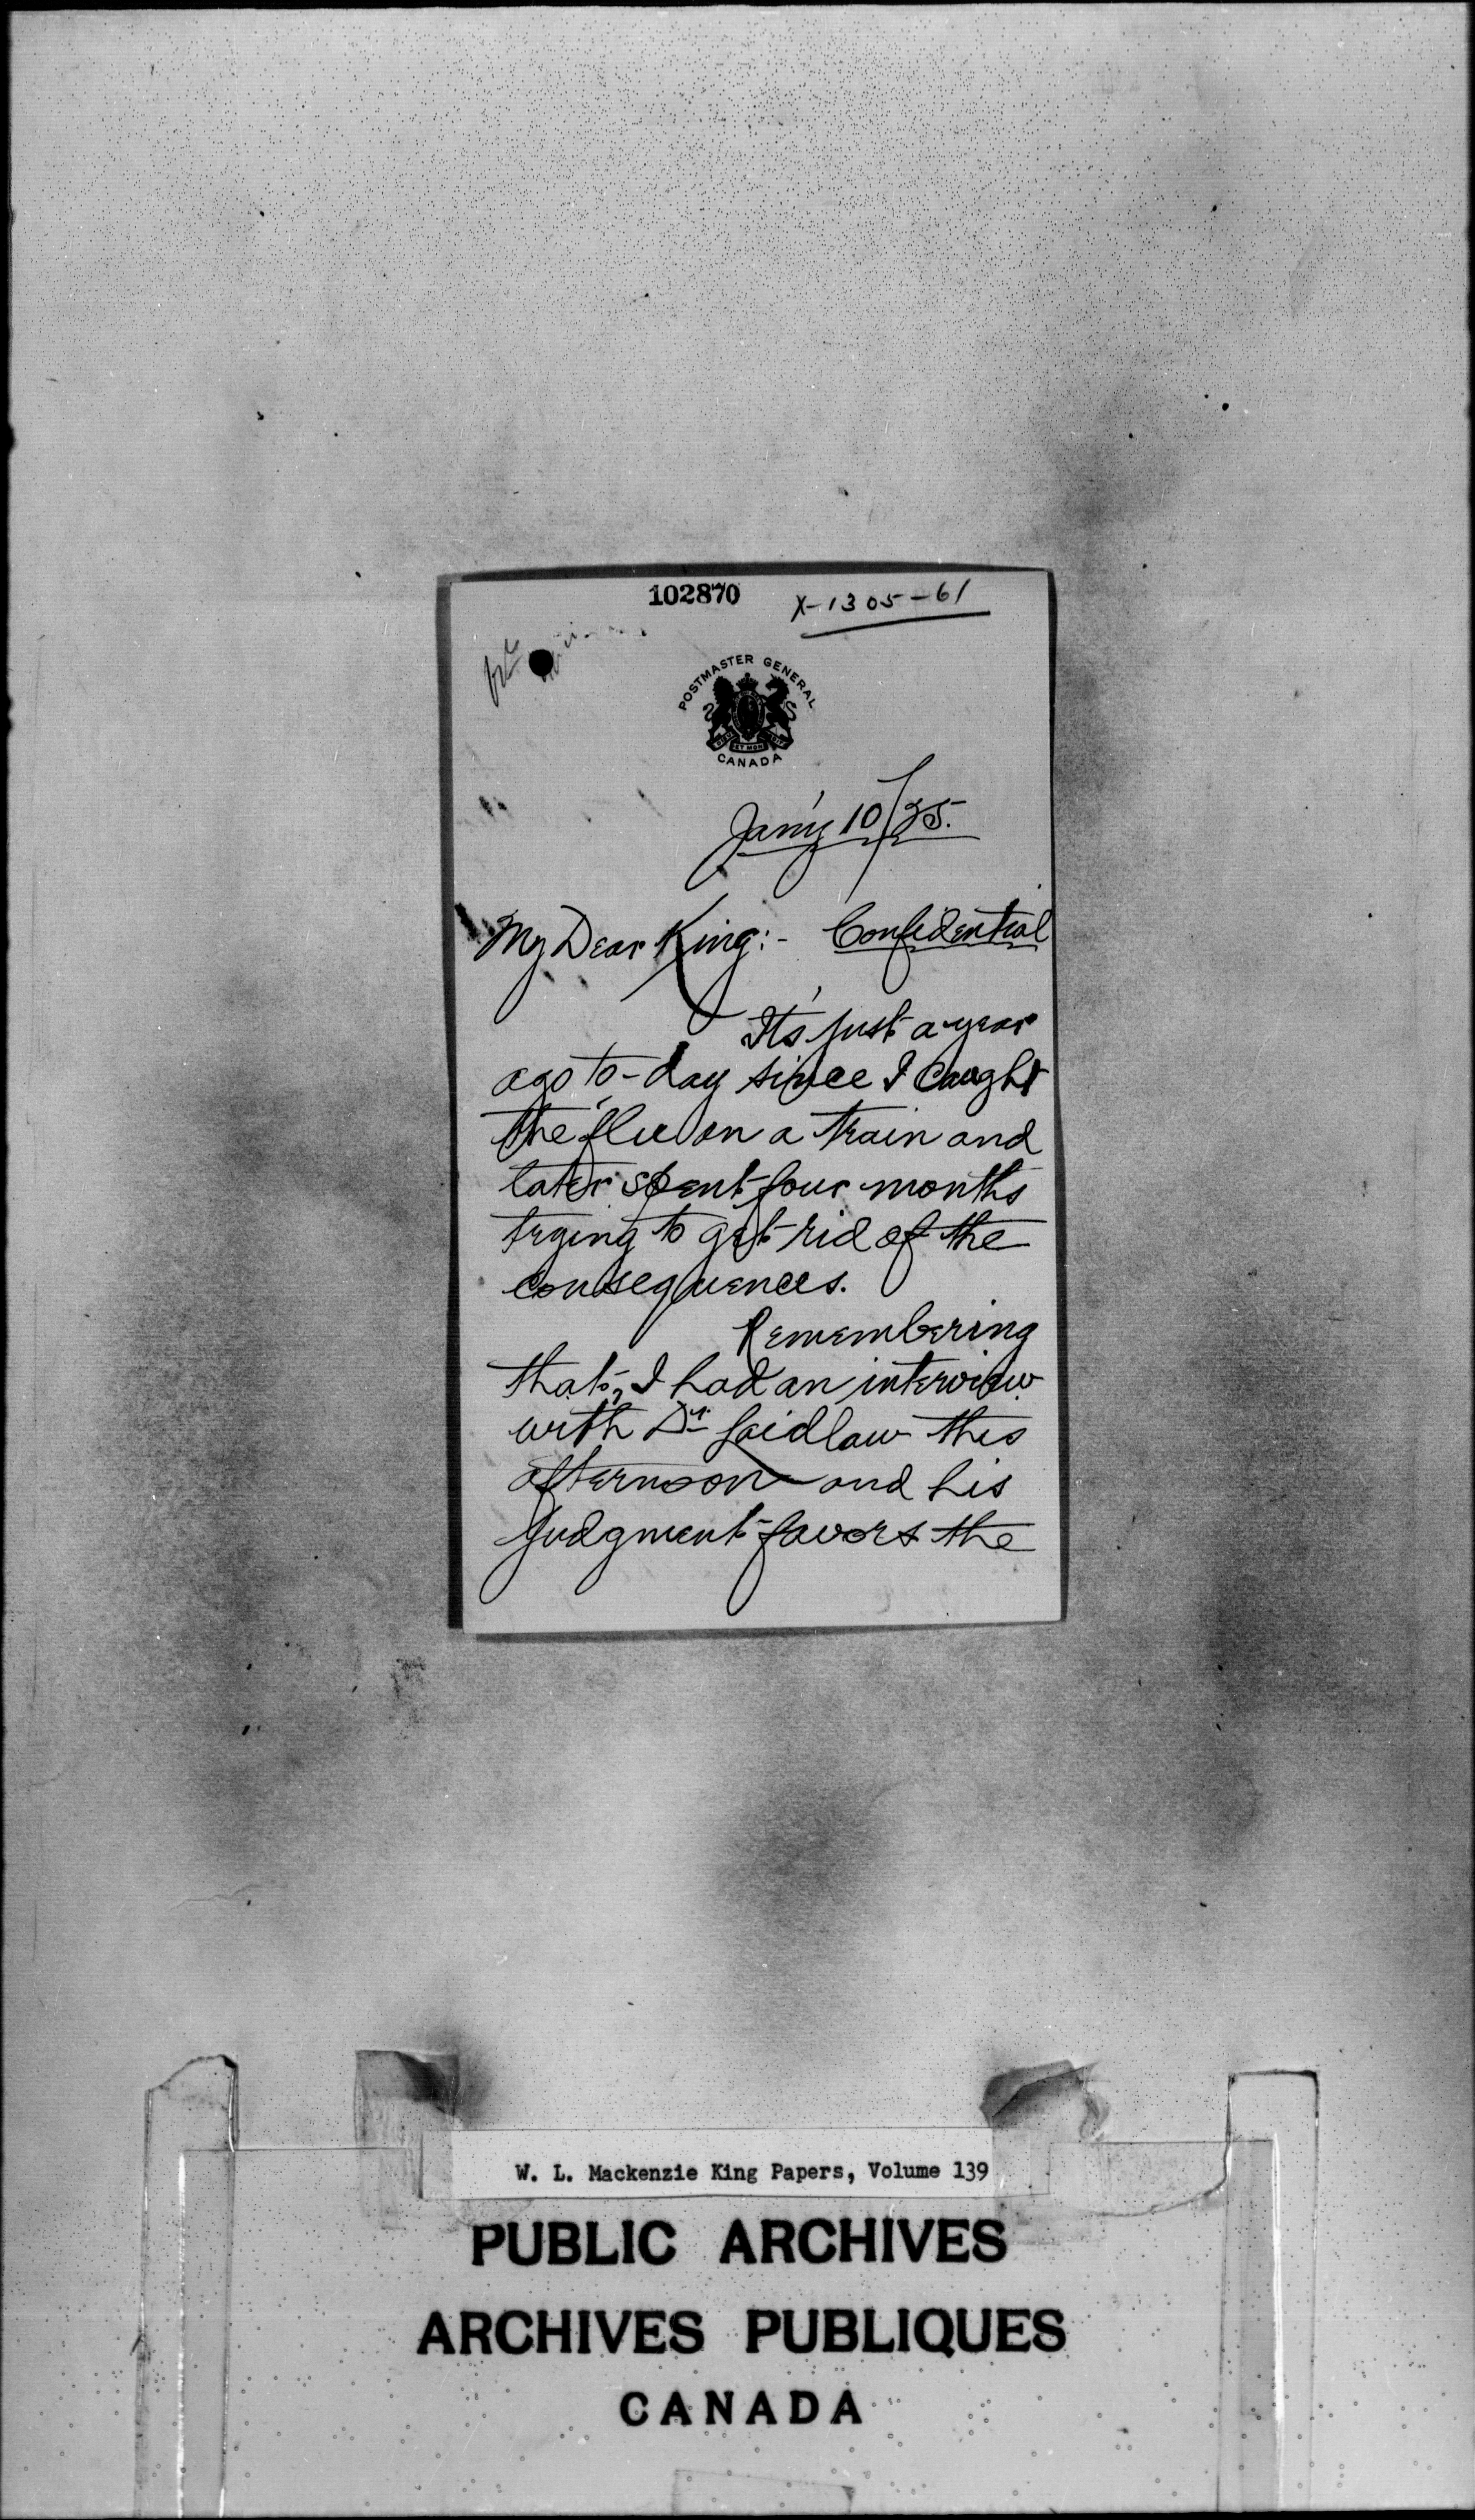 102870
X-1305-61
POSTMASTER GENERAL
CANADA
Jan'y 10/25.
My Dear King:- Confidential
It's just a year
ago to-day since I caught
the "flu" on a train and
later spent four months
trying to get rid of the
consequences.
Remembering
that, I had an interview
with Dr Laidlaw this
afternoon and his
judgment favors the
W. L. Mackenzie King Papers, Volume 139
PUBLIC ARCHIVES
ARCHIVES PUBLIQUES
CANADA